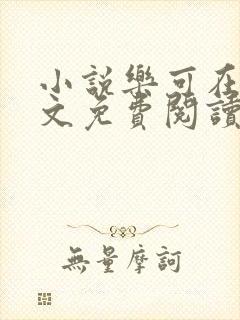 小說樂可在
文免費閱讀
無量摩訶